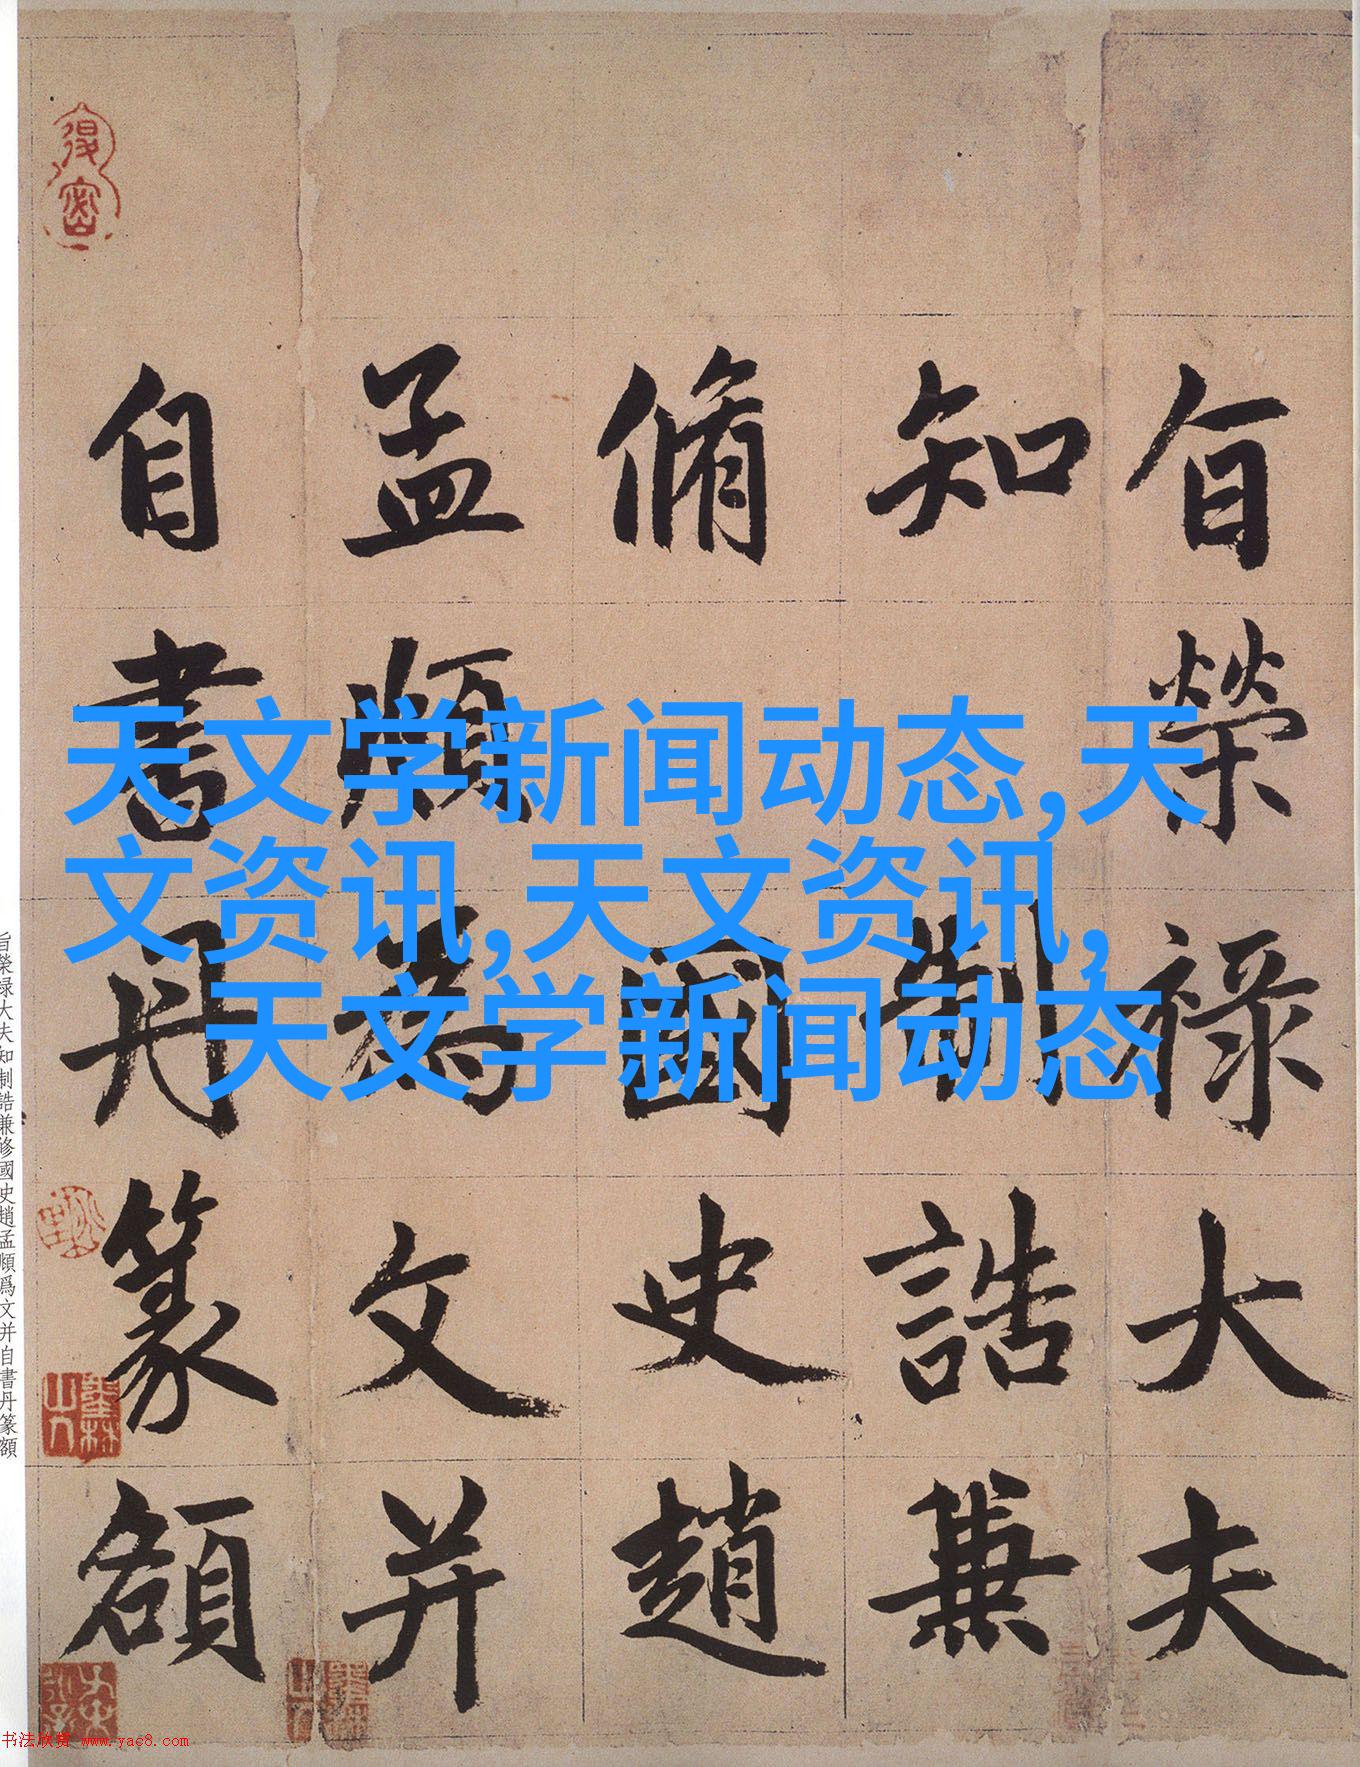 天文学新闻动态,天
文资讯,天文资讯,
天文学新闻动态
旨榮禄大夫
知制誥兼
脩國史趙
孟頫為文并
自書丹篆額
旨榮禄大夫知制誥兼修國史趙孟頫爲文并自書丹篆額
书法欣赏 www.yac8.com